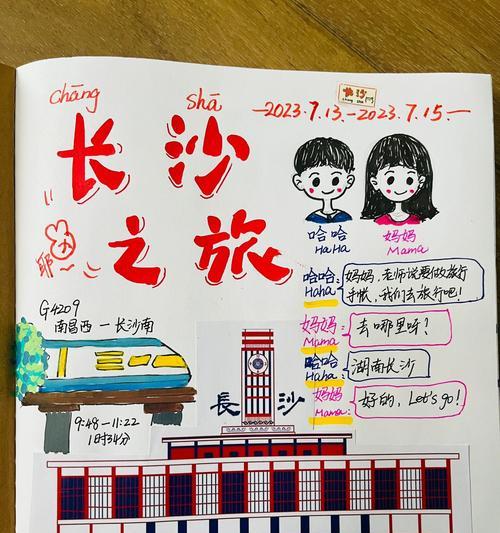 chāng shā
长沙
之旅
耶
长沙
chang sha
2023.7.13.-2023.7.15.
哈哈
HaHa
妈妈
Mama
哈哈:
Haha
妈妈,老师说要做旅行
手帐,我们去旅行吧!
妈妈:
Mama
去哪里呀?
哈哈:
Haha
湖南长沙
妈妈:
Mama:
好的,Let's go!
G4209
南昌西-长沙南
9:48-11:22
1时34分
長沙